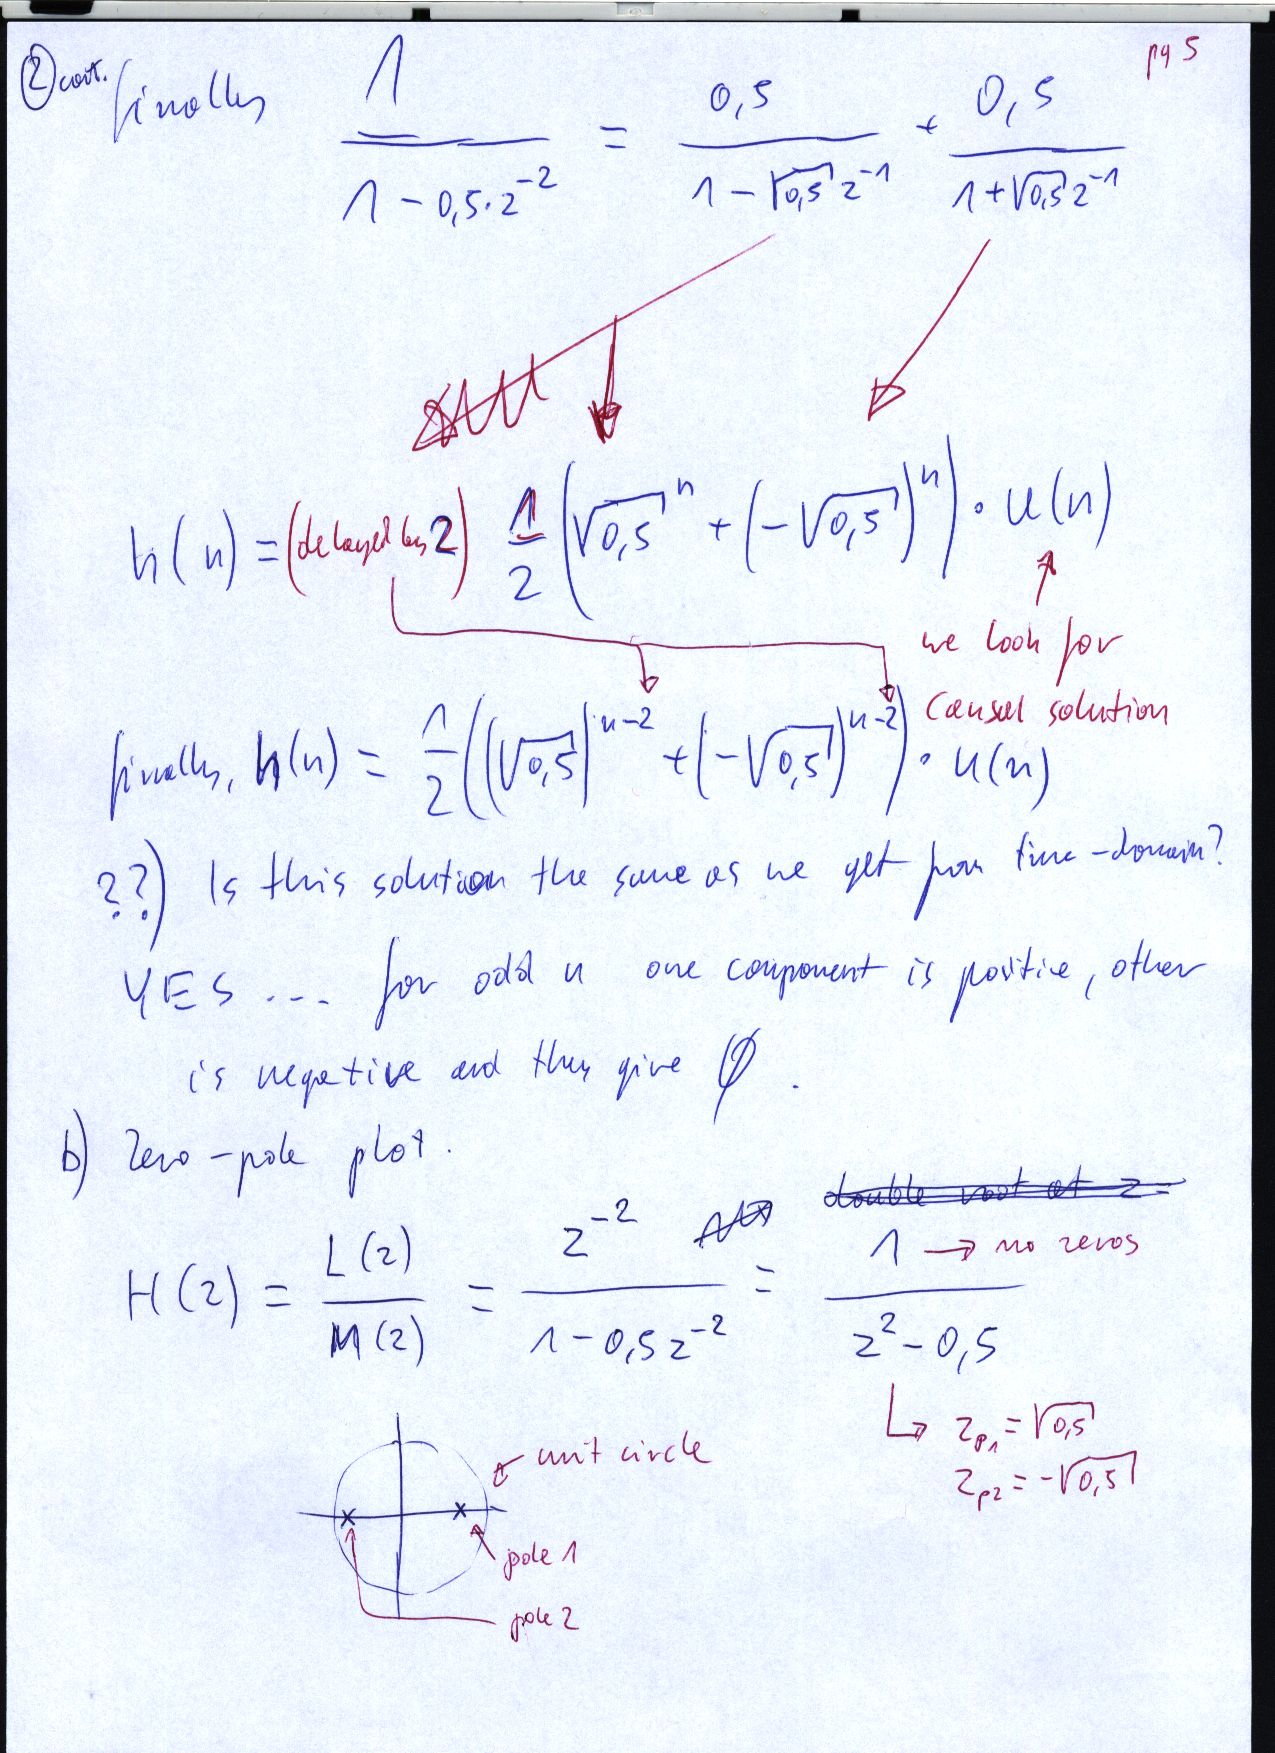 ② cont. finally 1 / (1 - 0,5·z^-2) = 0,5 / (1 - √0,5 z^-1) + 0,5 / (1 + √0,5 z^-1) pg 5
h(n) = (delayed by 2) 1/2 (√0,5^n + (-√0,5)^n) · u(n)
we look for
causal solution
finally, h(n) = 1/2 ((√0,5)^n-2 + (-√0,5)^n-2) · u(n)
??) Is this solution the same as we get from time-domain?
YES ... for odd n one component is positive, other
is negative and they give φ.
b) Zero-pole plot.
double root at z =
H(z) = L(z) / M(z) = z^-2 / (1 - 0,5z^-2) = 1 / (z^2 - 0,5) → no zeros
z_p1 = √0,5
z_p2 = -√0,5
unit circle
pole 1
pole 2